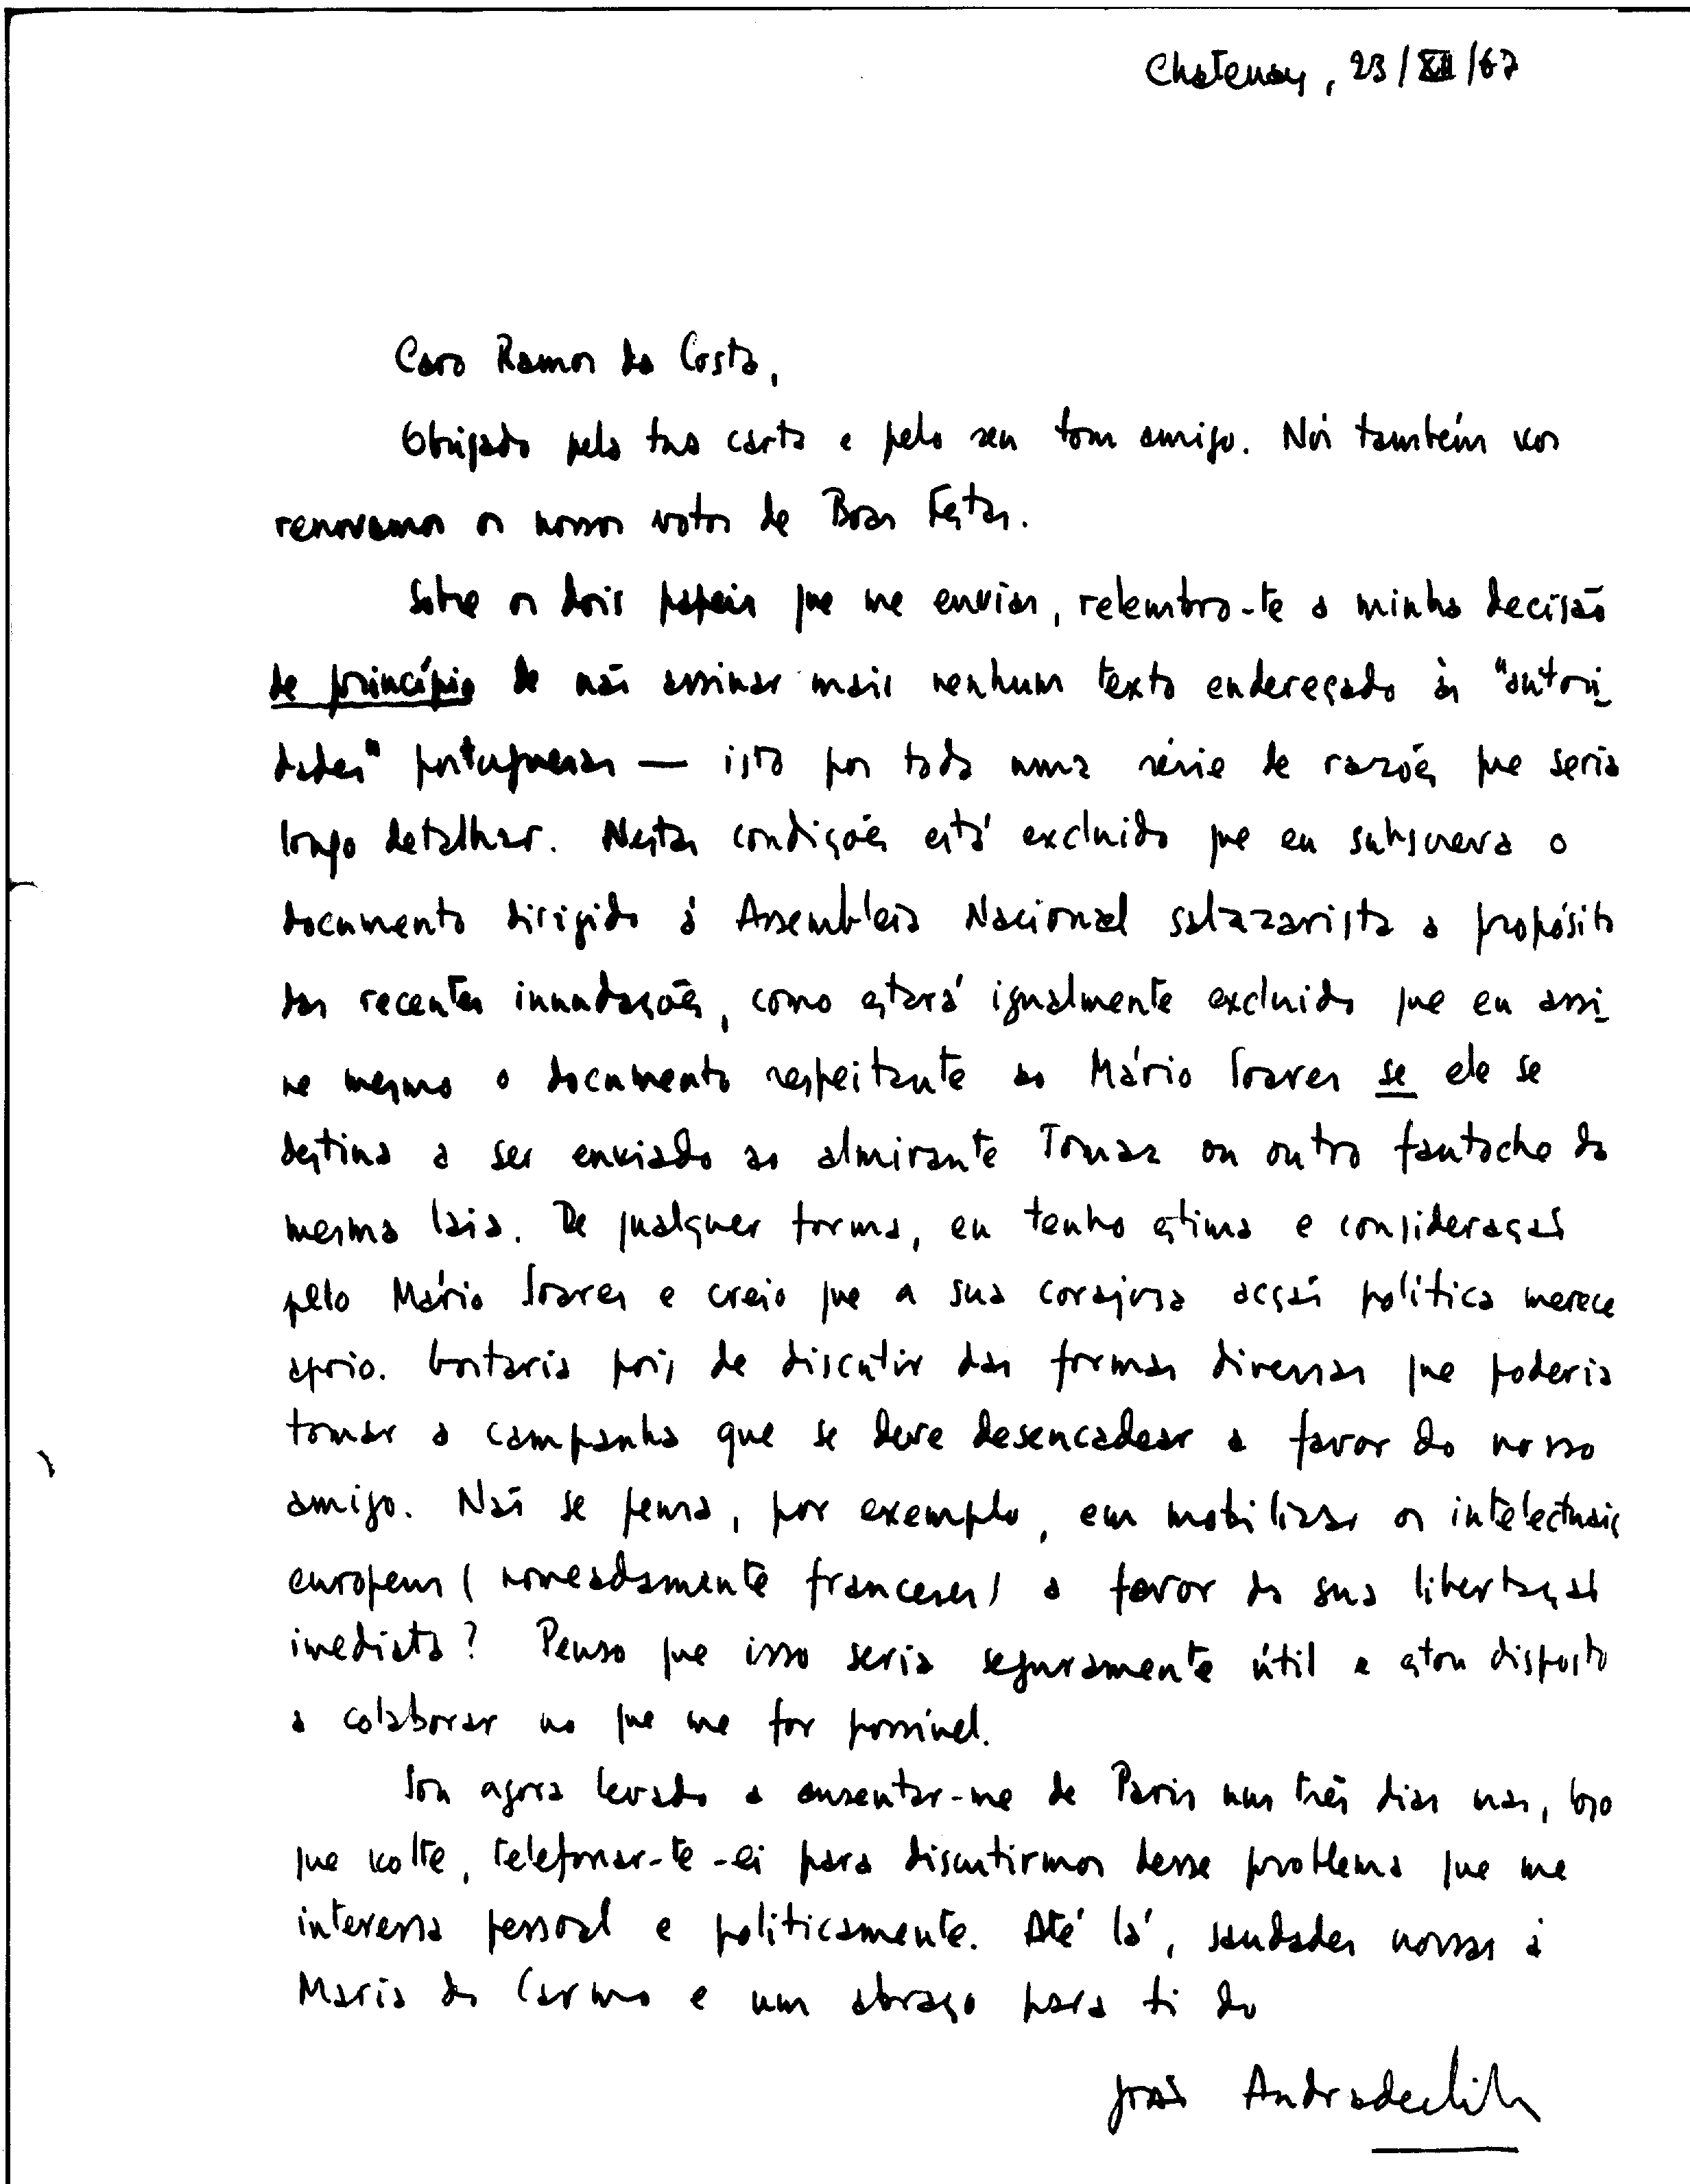 Chatenay, 23/XII/67
Caro Ramos da Costa,
Obrigado pela tua carta e pelo seu tom amigo. Nós também vos
renovamos os nossos votos de Boas Festas.
Sobre os dois papeis que me envias, relembro-te a minha decisão
de princípio de não assinar mais nenhum texto endereçado às "autori
dades" portuguesas — isto por toda uma série de razões que seria
longo detalhar. Nestas condições está excluido que eu subscreva o
documento dirigido à Assembleia Nacional salazarista a propósito
das recentes inundações, como estará igualmente excluido que eu assi
ne mesmo o documento respeitante ao Mário Soares se ele se
destina a ser enviado ao almirante Tomaz ou outro fantoche da
mesma laia. De qualquer forma, eu tenho estima e consideração
pelo Mário Soares e creio que a sua corajosa acção política merece
apoio. Gostaria pois de discutir das formas diversas que poderia
tomar a campanha que se deve desencadear a favor do nosso
amigo. Não se pensa, por exemplo, em mobilizar os intelectuais
europeus (nomeadamente franceses) a favor da sua libertação
imediata? Penso que isso seria seguramente útil e estou disposto
a colaborar no que me for possível.
Sou agora levado a ausentar-me de Paris uns três dias mas, logo
que volte, telefonar-te-ei para discutirmos desse problema que me
interessa pessoal e politicamente. Até lá, saudades nossas à
Maria do Carmo e um abraço para ti do
João Andrade